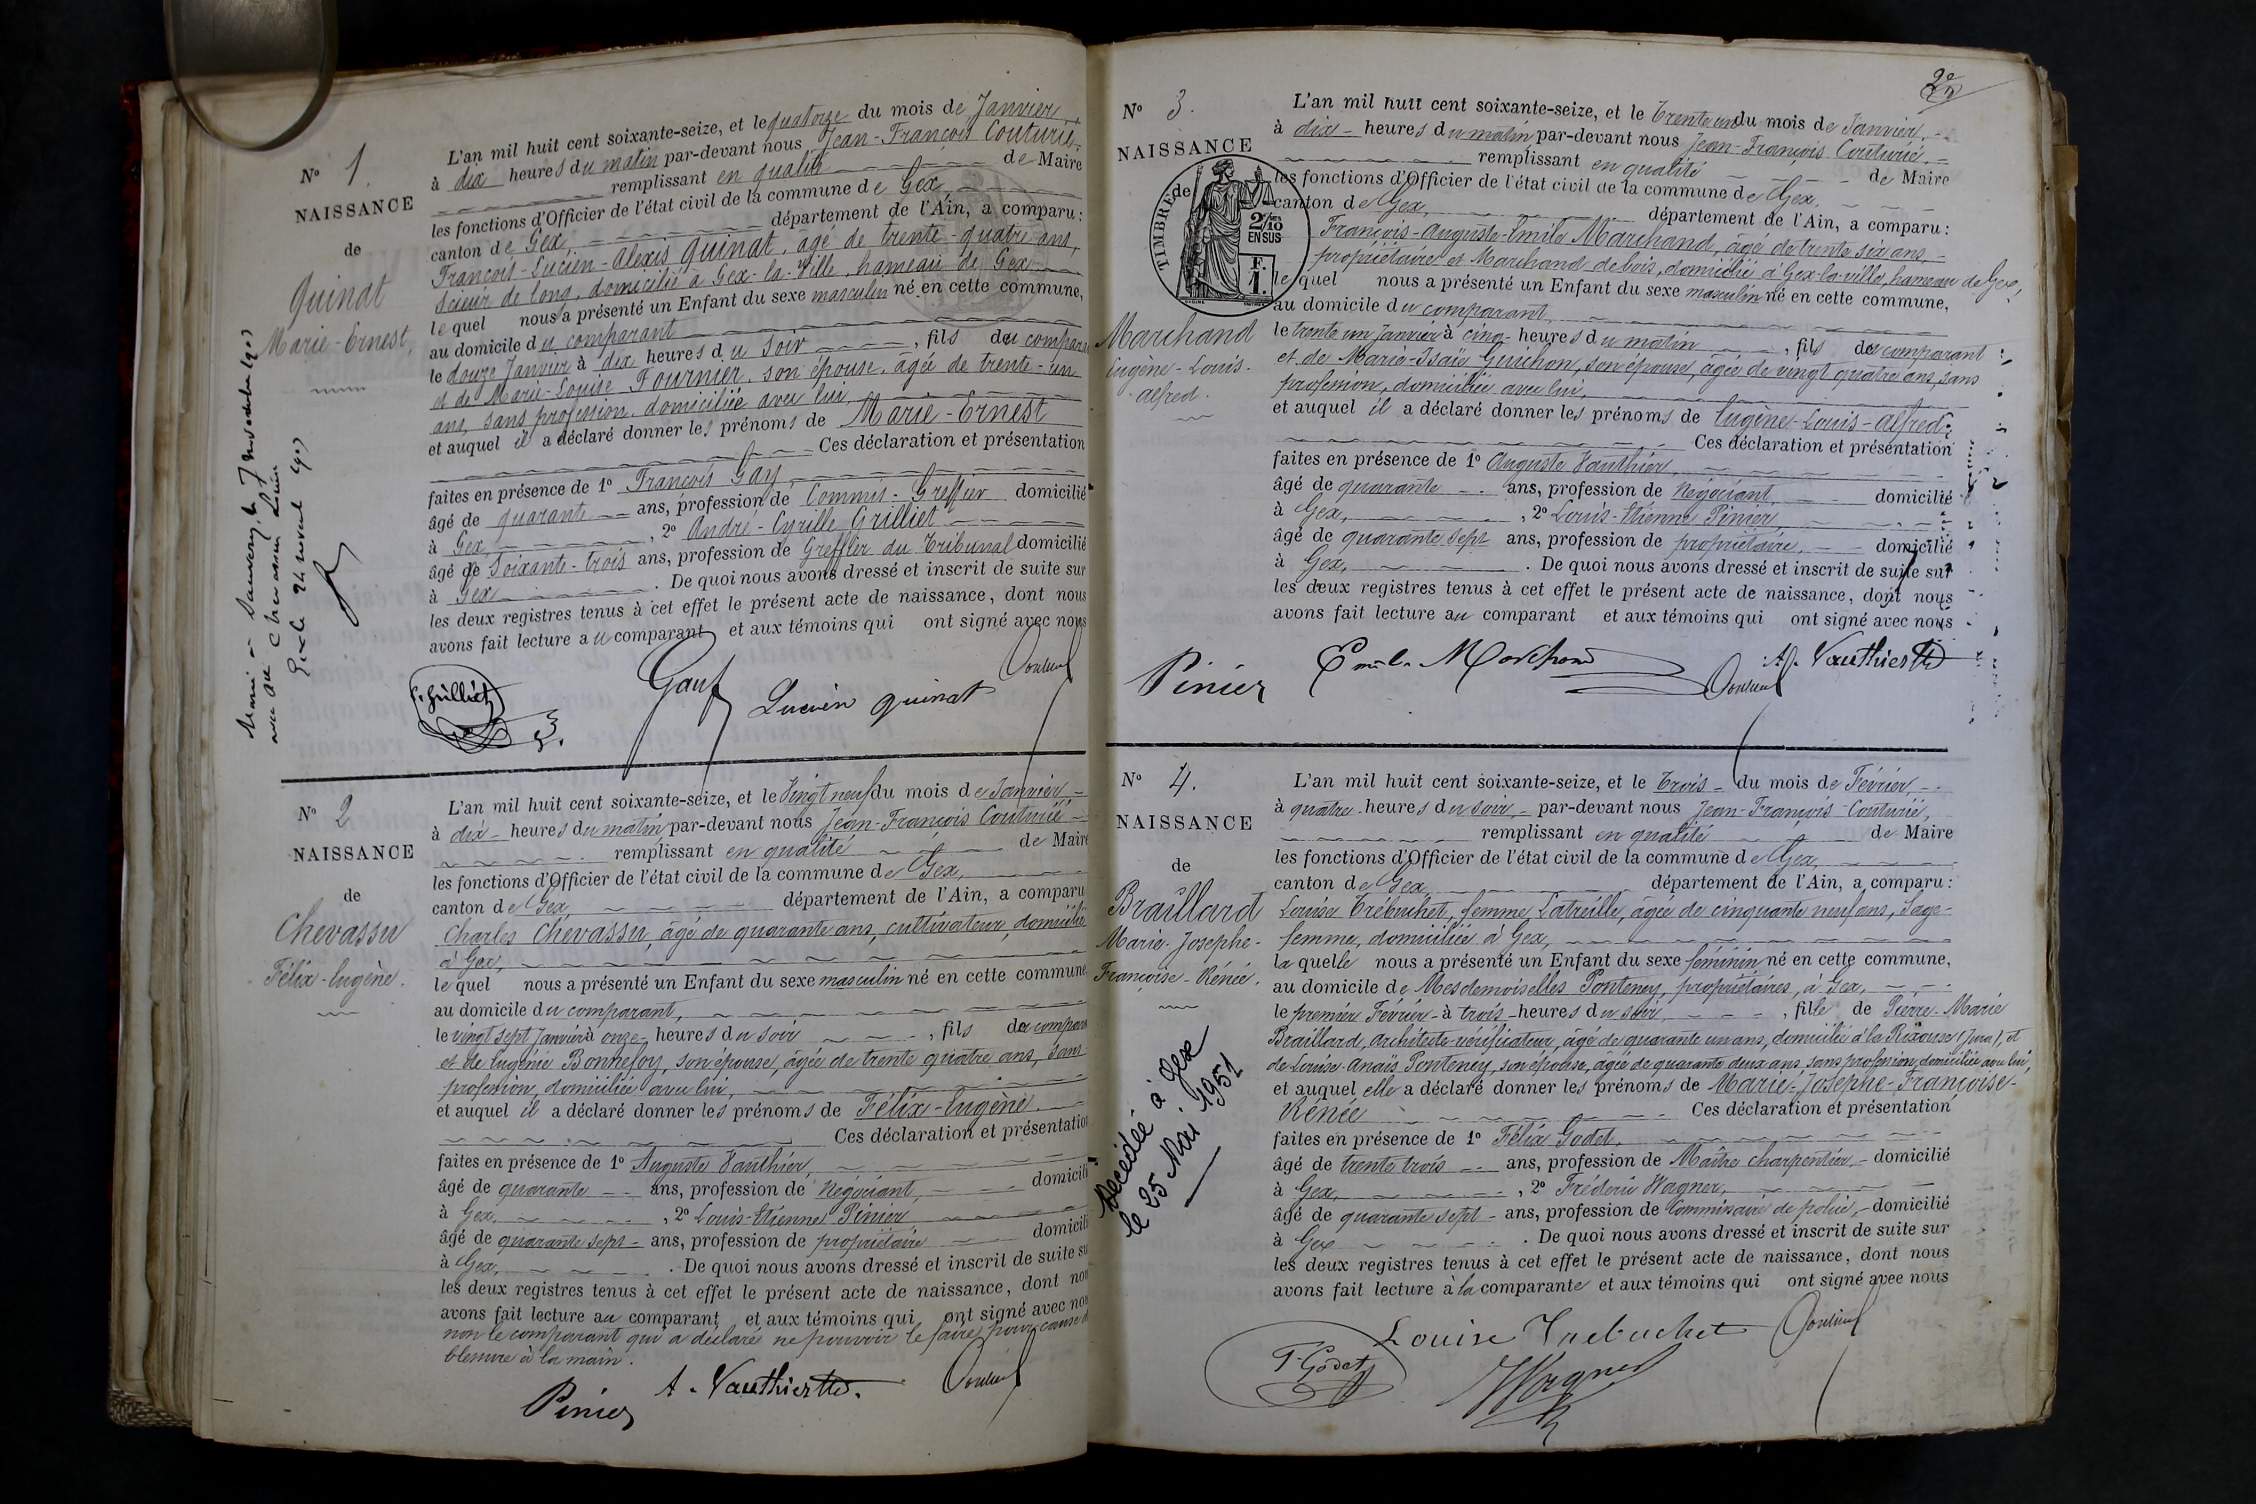 N° 1.
NAISSANCE
de
Quinat
Marie-Ernest.
L'an mil huit cent soixante-seize, et le quatorze du mois de Janvier
à dix heures du matin par-devant nous Jean-François Couturié
remplissant en qualité de Maire
les fonctions d'Officier de l'état civil de la commune de Gex
canton de Gex, département de l'Ain, a comparu:
François-Lucien-Alexis Quinat, âgé de trente-quatre ans,
scieur de long, domicilié à Gex-la-Ville, hameau de Gex
lequel nous a présenté un Enfant du sexe masculin né en cette commune,
au domicile du comparant
le douze Janvier à dix heures du soir, fils du compara
et de Marie-Louise Fournier, son épouse, âgée de trente-un
ans, sans profession, domiciliée avec lui
et auquel il a déclaré donner les prénoms de Marie-Ernest
Ces déclaration et présentation
faites en présence de 1° François Gay,
âgé de quarante ans, profession de Commis-Greffier domicilié
à Gex, 2° André-Cyrille Grilliet
âgé de soixante-trois ans, profession de Greffier du Tribunal domicilié
à Gex. De quoi nous avons dressé et inscrit de suite sur
les deux registres tenus à cet effet le présent acte de naissance, dont nous
avons fait lecture au comparant et aux témoins qui ont signé avec nous
Grilliet Gay Lucien Quinat Couturié
Marié à Sauverny le 7 novembre 1903
avec Chevassu
Gex le 24 novembre 1903
N° 2
NAISSANCE
de
Chevassu
Félix-Eugène.
L'an mil huit cent soixante-seize, et le Vingt neuf du mois de Janvier
à dix heures du matin par-devant nous Jean-François Couturié
remplissant en qualité de Maire
les fonctions d'Officier de l'état civil de la commune de Gex,
canton de Gex, département de l'Ain, a comparu
Charles Chevassu, âgé de quarante ans, cultivateur, domicilié
à Gex,
lequel nous a présenté un Enfant du sexe masculin né en cette commune
au domicile du comparant,
le vingt sept Janvier à onze heures du soir, fils du compara
et de Eugénie Bonnefoy, son épouse, âgée de trente quatre ans, sans
profession, domiciliée avec lui,
et auquel il a déclaré donner les prénoms de Félix-Eugène.
Ces déclaration et présentation
faites en présence de 1° Auguste Vauthier,
âgé de quarante ans, profession de Négociant, domicili
à Gex, 2° Louis-Etienne Pinier
âgé de quarante sept ans, profession de propriétaire domicili
à Gex. De quoi nous avons dressé et inscrit de suite su
les deux registres tenus à cet effet le présent acte de naissance, dont nou
avons fait lecture au comparant et aux témoins qui ont signé avec nou
non le comparant qui a déclaré ne pouvoir le faire pour cause d
blessure à la main.
Pinier A. Vauthier Couturié
2e
N° 3.
NAISSANCE
de
TIMBRE
2/10
EN SUS
F.
1.
Marchand
Eugène-Louis-
alfred.
L'an mil huit cent soixante-seize, et le Trente un du mois de Janvier,
à dix heures du matin par-devant nous Jean-François Couturié,
remplissant en qualité de Maire
les fonctions d'Officier de l'état civil de la commune de Gex,
canton de Gex, département de l'Ain, a comparu:
François-Auguste-Emile Marchand, âgé de trente six ans,
propriétaire et Marchand de bois, domicilié à Gex-la-ville, hameau de Gex,
lequel nous a présenté un Enfant du sexe masculin né en cette commune,
au domicile du comparant
le trente un Janvier à cinq heures du matin, fils du comparant
et de Marie-Isaïe Guichon, son épouse, âgée de vingt quatre ans, sans
profession, domiciliée avec lui,
et auquel il a déclaré donner les prénoms de Eugène-Louis-Alfred.
Ces déclaration et présentation
faites en présence de 1° Auguste Vauthier,
âgé de quarante ans, profession de Négociant domicilié
à Gex, 2° Louis-Etienne Pinier,
âgé de quarante sept ans, profession de propriétaire, domicilié
à Gex. De quoi nous avons dressé et inscrit de suite sur
les deux registres tenus à cet effet le présent acte de naissance, dont nous
avons fait lecture au comparant et aux témoins qui ont signé avec nous
Pinier Emile Marchand Couturié A. Vauthier
N° 4.
NAISSANCE
de
Braillard
Marie-Josephe-
Françoise-Rénée.
L'an mil huit cent soixante-seize, et le Trois du mois de Février
à quatre heures du soir par-devant nous Jean-François Couturié,
remplissant en qualité de Maire
les fonctions d'Officier de l'état civil de la commune de Gex,
canton de Gex, département de l'Ain, a comparu:
Louise Trébuchet, femme Latreille, âgée de cinquante neuf ans, Sage-
femme, domiciliée à Gex,
laquelle nous a présenté un Enfant du sexe féminin né en cette commune,
au domicile de Mesdemoiselles Ponteney, propriétaires, à Gex,
le premier Février à trois heures du soir, fille de Pierre-Marie
Braillard, architecte-vérificateur, âgé de quarante un ans, domicilié à la Rixouse (Jura), et
de Louise-Anaïs Ponteney, son épouse, âgée de quarante deux ans, sans profession, domiciliée avec lui,
et auquel elle a déclaré donner les prénoms de Marie-Josephe-Françoise-
Rénée Ces déclaration et présentation
faites en présence de 1° Félix Godet,
âgé de trente trois ans, profession de Maître charpentier, domicilié
à Gex, 2° Frédéric Wagner,
âgé de quarante sept ans, profession de Commissaire de police, domicilié
à Gex. De quoi nous avons dressé et inscrit de suite sur
les deux registres tenus à cet effet le présent acte de naissance, dont nous
avons fait lecture à la comparante et aux témoins qui ont signé avec nous
Louise Trebuchet Couturié
F. Godet Wagner
Décédée à Gex
le 25 Mai 1951